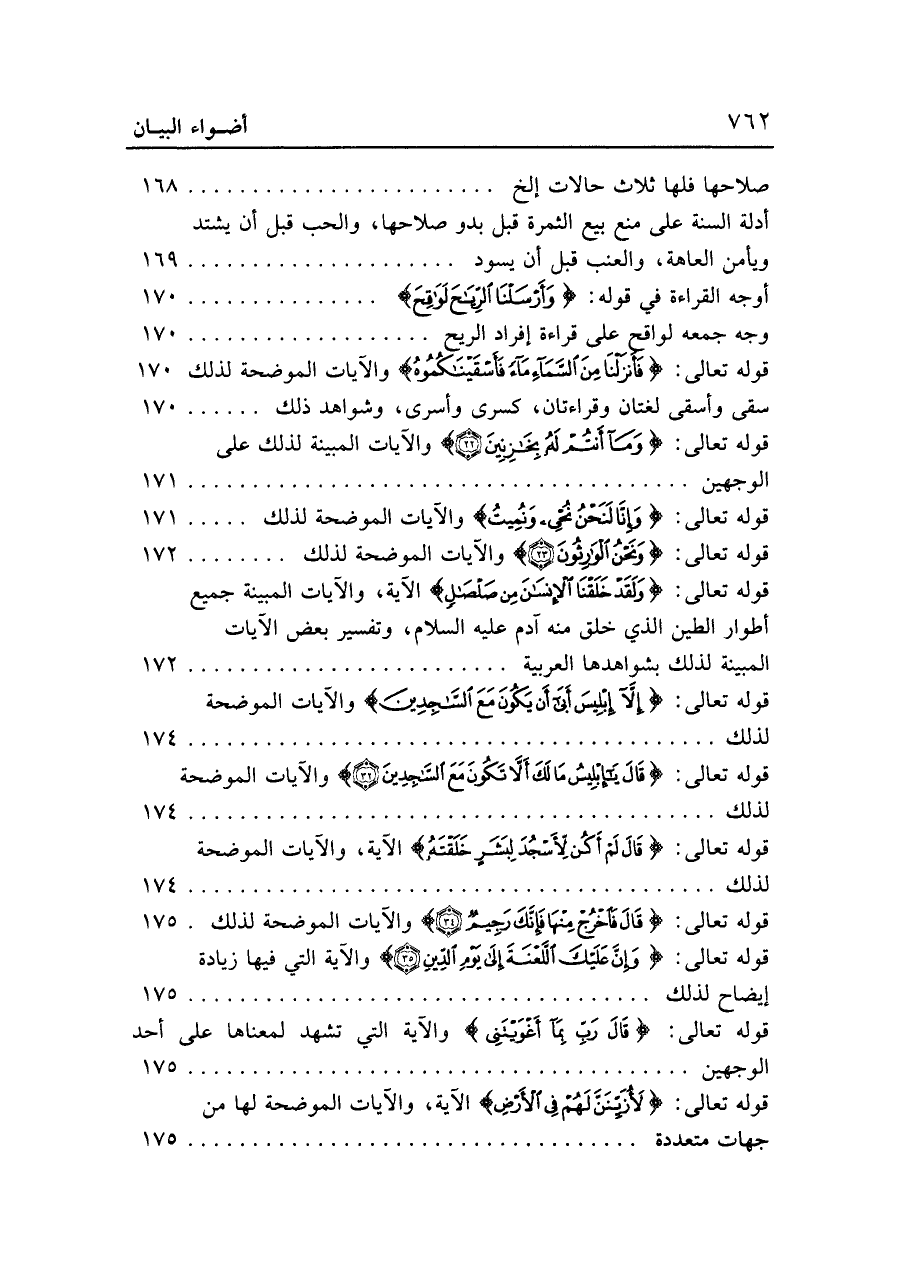 ٧٦٢ أضواء البيان
صلاحها فلها ثلاث حالات إلخ . . . . . . . . . . . . . . . . . . . . . . . . ١٦٨
أدلة السنة على منع بيع الثمرة قبل بدو صلاحها، والحب قبل أن يشتد
ويأمن العاهة، والعنب قبل أن يسود . . . . . . . . . . . . . . . . . . . . . ١٦٩
أوجه القراءة في قوله: ﴿ وَأَرْسَلْنَا ٱلرِّيَٰحَ لَوَٰقِحَ﴾ . . . . . . . . . . . . . . . ١٧٠
وجه جمعه لواقح على قراءة إفراد الريح . . . . . . . . . . . . . . . . . . . ١٧٠
قوله تعالى: ﴿ فَأَنزَلْنَا مِنَ ٱلسَّمَآءِ مَآءً فَأَسْقَيْنَٰكُمُوهُ﴾ والآيات الموضحة لذلك ١٧٠
سقى وأسقى لغتان وقراءتان، كسرى وأسرى، وشواهد ذلك . . . . . . ١٧٠
قوله تعالى: ﴿ وَمَآ أَنتُمْ لَهُۥ بِخَٰزِنِينَ ٢٢﴾ والآيات المبينة لذلك على
الوجهين . . . . . . . . . . . . . . . . . . . . . . . . . . . . . . . . . . . . . . . ١٧١
قوله تعالى: ﴿ وَإِنَّا لَنَحْنُ نُحْىِۦ وَنُمِيتُ﴾ والآيات الموضحة لذلك . . . . . ١٧١
قوله تعالى: ﴿ وَنَحْنُ ٱلْوَٰرِثُونَ ٢٣﴾ والآيات الموضحة لذلك . . . . . . . . ١٧٢
قوله تعالى: ﴿ وَلَقَدْ خَلَقْنَا ٱلْإِنسَٰنَ مِن صَلْصَٰلٍ﴾ الآية، والآيات المبينة جميع
أطوار الطين الذي خلق منه آدم عليه السلام، وتفسير بعض الآيات
المبينة لذلك بشواهدها العربية . . . . . . . . . . . . . . . . . . . . . . . . . ١٧٢
قوله تعالى: ﴿ إِلَّآ إِبْلِيسَ أَبَىٰٓ أَن يَكُونَ مَعَ ٱلسَّٰجِدِينَ﴾ والآيات الموضحة
لذلك . . . . . . . . . . . . . . . . . . . . . . . . . . . . . . . . . . . . . . . . . ١٧٤
قوله تعالى: ﴿ قَالَ يَٰٓإِبْلِيسُ مَا لَكَ أَلَّا تَكُونَ مَعَ ٱلسَّٰجِدِينَ ٣٢﴾ والآيات الموضحة
لذلك . . . . . . . . . . . . . . . . . . . . . . . . . . . . . . . . . . . . . . . . . ١٧٤
قوله تعالى: ﴿ قَالَ لَمْ أَكُن لِّأَسْجُدَ لِبَشَرٍ خَلَقْتَهُۥ﴾ الآية، والآيات الموضحة
لذلك . . . . . . . . . . . . . . . . . . . . . . . . . . . . . . . . . . . . . . . . . ١٧٤
قوله تعالى: ﴿ قَالَ فَٱخْرُجْ مِنْهَا فَإِنَّكَ رَجِيمٌ ٣٤﴾ والآيات الموضحة لذلك . ١٧٥
قوله تعالى: ﴿ وَإِنَّ عَلَيْكَ ٱللَّعْنَةَ إِلَىٰ يَوْمِ ٱلدِّينِ ٣٥﴾ والآية التي فيها زيادة
إيضاح لذلك . . . . . . . . . . . . . . . . . . . . . . . . . . . . . . . . . . . . ١٧٥
قوله تعالى: ﴿ قَالَ رَبِّ بِمَآ أَغْوَيْتَنِى ﴾ والآية التي تشهد لمعناها على أحد
الوجهين . . . . . . . . . . . . . . . . . . . . . . . . . . . . . . . . . . . . . . . ١٧٥
قوله تعالى: ﴿ لَأُزَيِّنَنَّ لَهُمْ فِى ٱلْأَرْضِ﴾ الآية، والآيات الموضحة لها من
جهات متعددة . . . . . . . . . . . . . . . . . . . . . . . . . . . . . . . . . . . ١٧٥